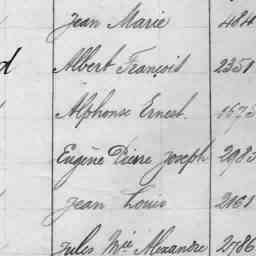 Jean Marie 484
d Albert François 2351
Alphonse Ernest. 1573
Eugène Pierre Joseph 2983
Jean Louis 2161
Jules Mie Alexandre 2786